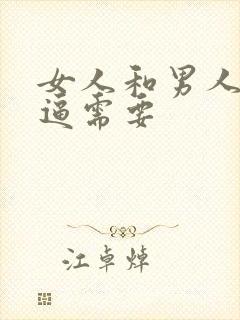 女人和男人
逼需要
江卓焯